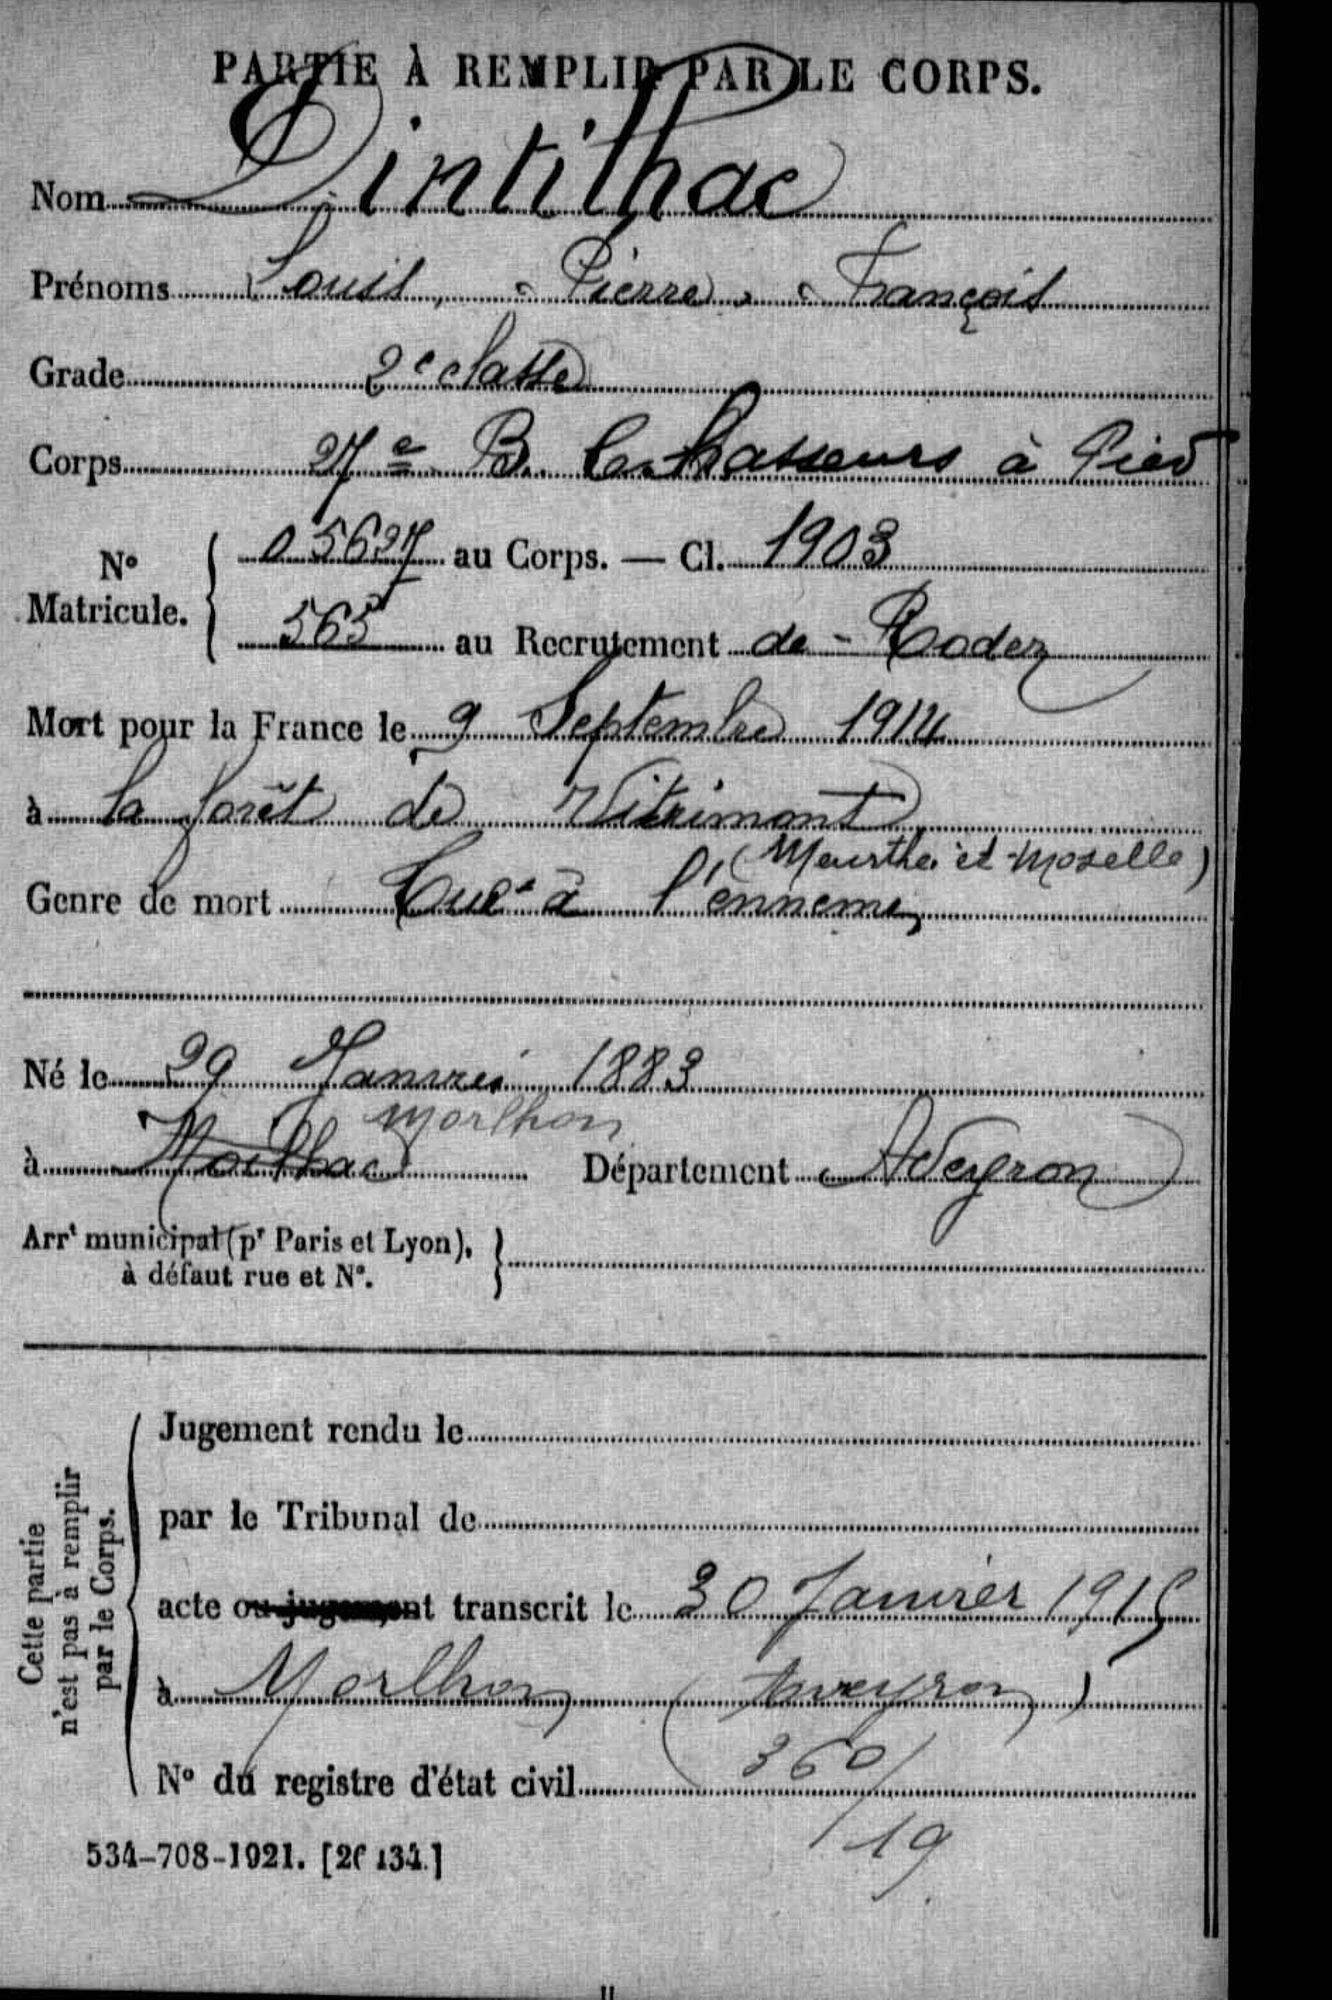 PARTIE À REMPLIR PAR LE CORPS.
Nom Dintilhac
Prénoms Louis, Pierre, François
Grade 2e classe
Corps 27e B. Chasseurs à Pied
N° Matricule. 05627 au Corps. — Cl. 1903
565 au Recrutement de Rodez
Mort pour la France le 9 Septembre 1914
à la forêt de Vitrimont
(Meurthe et Moselle)
Genre de mort Tué à l'ennemi
Né le 29 Janvier 1883
Morlhon
à Morlhac Département Aveyron
Arrt municipal (pr Paris et Lyon),
à défaut rue et N°.
Cette partie
n'est pas à remplir
par le Corps.
Jugement rendu le
par le Tribunal de
acte ou jugement transcrit le 30 Janvier 1915
à Morlhon (Aveyron)
N° du registre d'état civil 360/19
534-708-1921. [26434.]